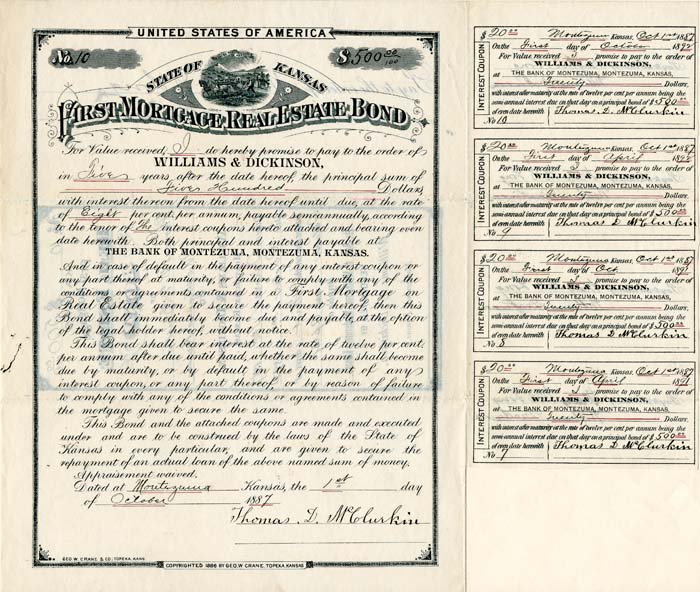 UNITED STATES OF AMERICA
No. 10
$500 00/100
STATE OF KANSAS
FIRST MORTGAGE REAL ESTATE BOND
For Value received, I do hereby promise to pay to the order of
WILLIAMS & DICKINSON,
in Five years, after the date hereof, the principal sum of
Five Hundred Dollars,
with interest thereon from the date hereof until due, at the rate
of Eight per cent. per annum, payable semiannually, according
to the tenor of the interest coupons hereto attached and bearing even
date herewith. Both principal and interest payable at
THE BANK OF MONTEZUMA, MONTEZUMA, KANSAS.
And in case of default in the payment of any interest coupon or
any part thereof at maturity, or failure to comply with any of the
conditions or agreements contained in a First Mortgage on
Real Estate given to secure the payment hereof, then this
Bond shall immediately become due and payable, at the option
of the legal holder hereof, without notice.
This Bond shall bear interest at the rate of twelve per cent.
per annum after due until paid, whether the same shall become
due by maturity, or by default in the payment of any
interest coupon, or any part thereof, or by reason of failure
to comply with any of the conditions or agreements contained in
the mortgage given to secure the same.
This Bond and the attached coupons are made and executed
under and are to be construed by the laws of the State of
Kansas in every particular, and are given to secure the
repayment of an actual loan of the above named sum of money.
Appraisement waived.
Dated at Montezuma Kansas, the 1st day
of October 1887
Thomas D. McClurkin
GEO. W. CRANE & CO. TOPEKA, KANS.
COPYRIGHTED 1886 BY GEO. W. CRANE, TOPEKA, KANSAS
INTEREST COUPON
$20 00 Montezuma Kansas, Oct 1st 1887
On the First day of October 1892
For Value received I promise to pay to the order of
WILLIAMS & DICKINSON,
AT THE BANK OF MONTEZUMA, MONTEZUMA, KANSAS,
Twenty Dollars,
with interest after maturity at the rate of twelve per cent per annum being the
semi-annual interest due on that day on a principal bond of $500 00
of even date herewith Thomas D. McClurkin
No 10
INTEREST COUPON
$20 00 Montezuma Kansas, Oct 1st 1887
On the First day of April 1892
For Value received I promise to pay to the order of
WILLIAMS & DICKINSON,
AT THE BANK OF MONTEZUMA, MONTEZUMA, KANSAS,
Twenty Dollars,
with interest after maturity at the rate of twelve per cent per annum being the
semi-annual interest due on that day on a principal bond of $500 00
of even date herewith Thomas D. McClurkin
No 9
INTEREST COUPON
$20 00 Montezuma Kansas, Oct 1st 1887
On the First day of Oct 1891
For Value received I promise to pay to the order of
WILLIAMS & DICKINSON,
AT THE BANK OF MONTEZUMA, MONTEZUMA, KANSAS,
Twenty Dollars,
with interest after maturity at the rate of twelve per cent per annum being the
semi-annual interest due on that day on a principal bond of $500 00
of even date herewith Thomas D McClurkin
No 8
INTEREST COUPON
$20 00 Montezuma Kansas, Oct 1st 1887
On the First day of April 1891
For Value received I promise to pay to the order of
WILLIAMS & DICKINSON,
AT THE BANK OF MONTEZUMA, MONTEZUMA, KANSAS,
Twenty Dollars,
with interest after maturity at the rate of twelve per cent per annum being the
semi-annual interest due on that day on a principal bond of $500 00
of even date herewith Thomas D. McClurkin
No 7